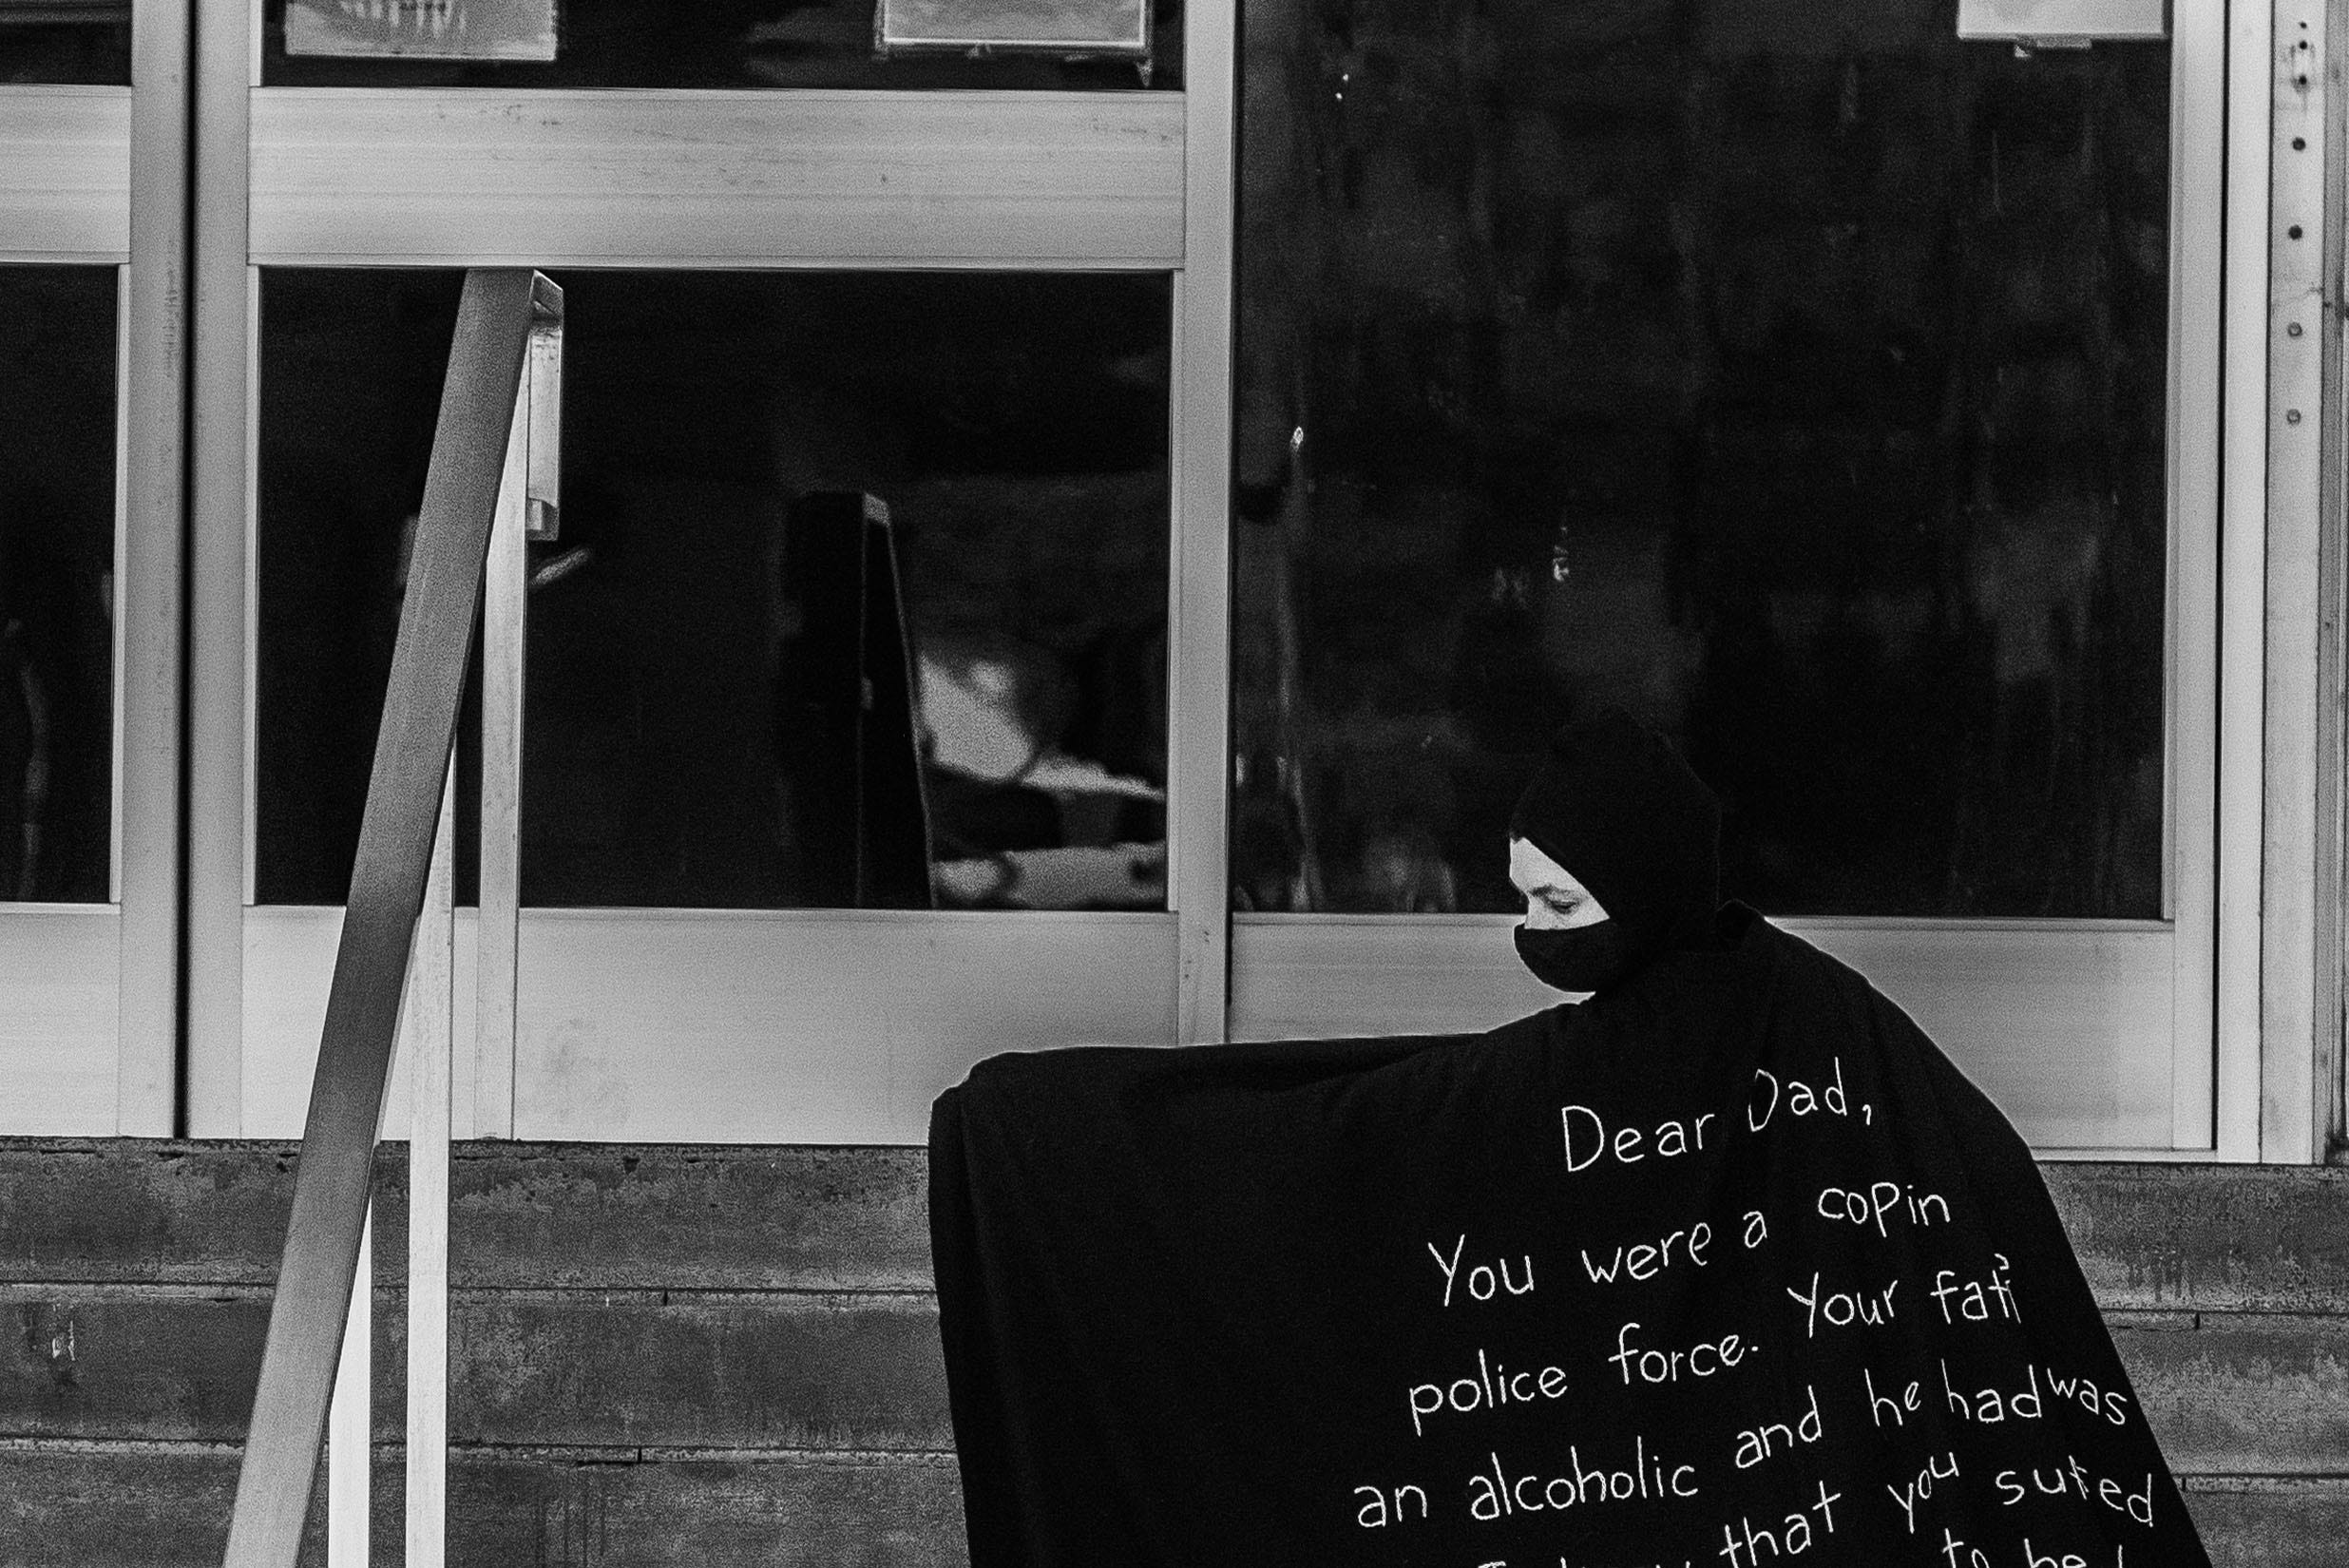 Dear Dad,
You were a cop in
police force. Your
an alcoholic and he had was
that you suted
to be